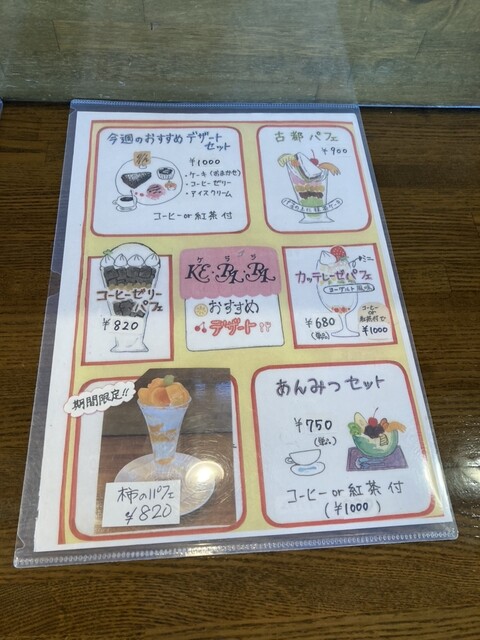 今週のおすすめデザート
セット
¥1000
・ケーキ(おまかせ)
・コーヒーゼリー
・アイスクリーム
コーヒー or 紅茶 付
古都パフェ
¥900
コーヒーゼリー
パフェ
¥820
ケ ラ ラ
おすすめ
デザート!!
ミニ
カッテージーゼパフェ
ヨーグルト風味
¥680
(単品)
コーヒー
or
紅茶付で
¥1000
期間限定!!
柿のパフェ
¥820
あんみつセット
¥750
(単品)
コーヒー or 紅茶 付
(¥1000)